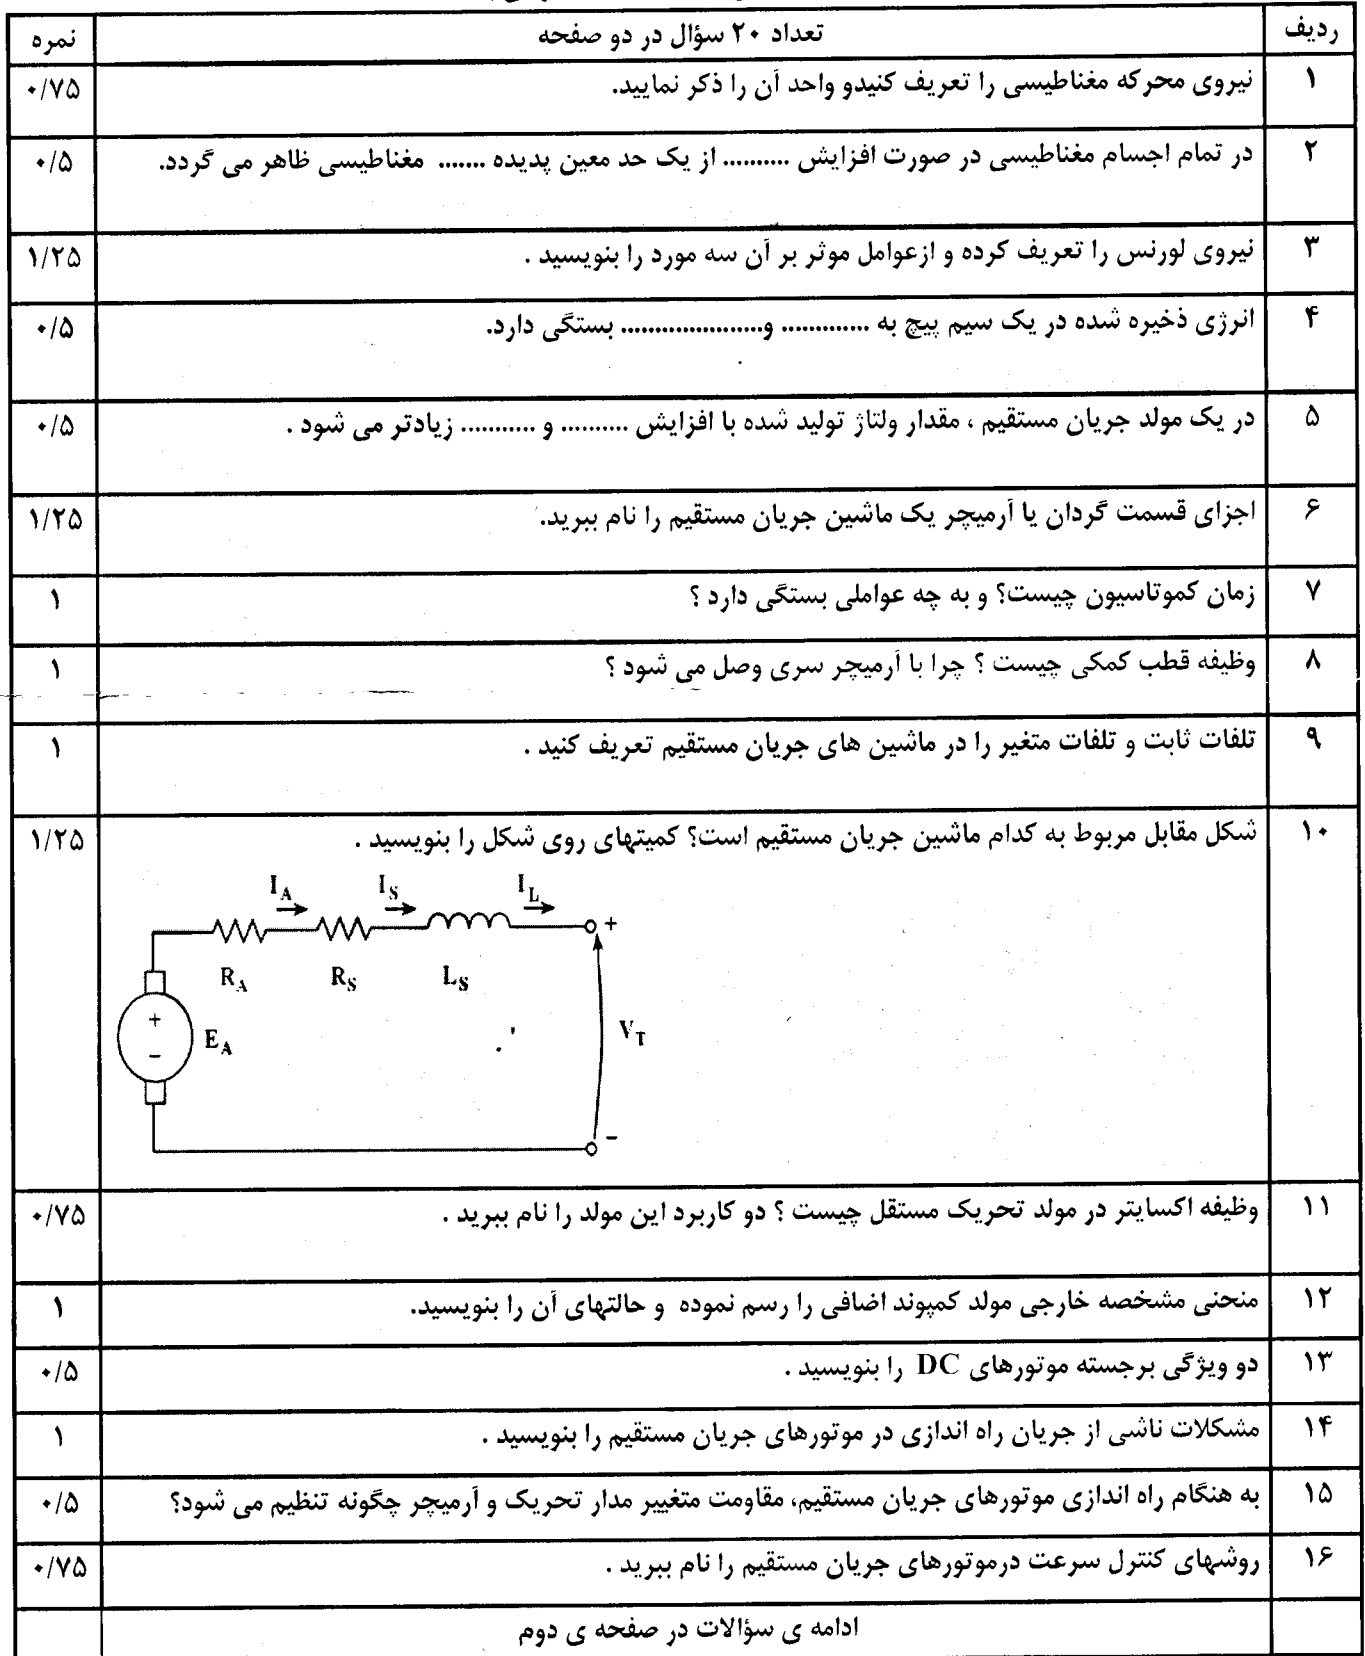 ردیف	تعداد ۲۰ سؤال در دو صفحه	نمره
۱	نیروی محرکه مغناطیسی را تعریف کنیدو واحد آن را ذکر نمایید.	۰/۷۵
۲	در تمام اجسام مغناطیسی در صورت افزایش .......... از یک حد معین پدیده ....... مغناطیسی ظاهر می گردد.	۰/۵
۳	نیروی لورنس را تعریف کرده و ازعوامل موثر بر آن سه مورد را بنویسید .	۱/۲۵
۴	انرژی ذخیره شده در یک سیم پیچ به ............. و..................... بستگی دارد.	۰/۵
۵	در یک مولد جریان مستقیم ، مقدار ولتاژ تولید شده با افزایش .......... و ........... زیادتر می شود .	۰/۵
۶	اجزای قسمت گردان یا آرمیچر یک ماشین جریان مستقیم را نام ببرید.	۱/۲۵
۷	زمان کموتاسیون چیست؟ و به چه عواملی بستگی دارد ؟	۱
۸	وظیفه قطب کمکی چیست ؟ چرا با آرمیچر سری وصل می شود ؟	۱
۹	تلفات ثابت و تلفات متغیر را در ماشین های جریان مستقیم تعریف کنید .	۱
۱۰	شکل مقابل مربوط به کدام ماشین جریان مستقیم است؟ کمیتهای روی شکل را بنویسید .	۱/۲۵
I_A I_S I_L
+
R_A R_S L_S
+
E_A V_T
−
−
۱۱	وظیفه اکسایتر در مولد تحریک مستقل چیست ؟ دو کاربرد این مولد را نام ببرید .	۰/۷۵
۱۲	منحنی مشخصه خارجی مولد کمپوند اضافی را رسم نموده و حالتهای آن را بنویسید.	۱
۱۳	دو ویژگی برجسته موتورهای DC را بنویسید .	۰/۵
۱۴	مشکلات ناشی از جریان راه اندازی در موتورهای جریان مستقیم را بنویسید .	۱
۱۵	به هنگام راه اندازی موتورهای جریان مستقیم، مقاومت متغییر مدار تحریک و آرمیچر چگونه تنظیم می شود؟	۰/۵
۱۶	روشهای کنترل سرعت درموتورهای جریان مستقیم را نام ببرید .	۰/۷۵
ادامه ی سؤالات در صفحه ی دوم